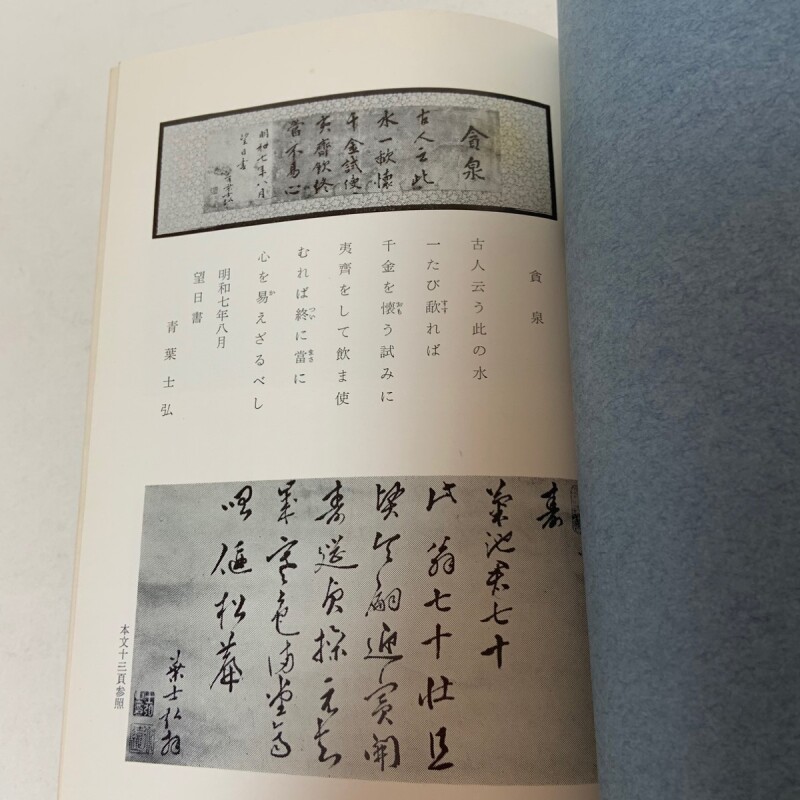 貪泉
古人云此
水一歃懷
千金試使
夷齊飲終
當不易心
明和七年八月
望日書
貪泉
古人云う此の水
一たび歃れば
すす
千金を懷う試みに
おも
夷齊をして飲ま使
むれば終に當に
つい まさ
心を易えざるべし
か
明和七年八月
望日書
青葉士弘
壽
菊池君七十
翁七十壮且
嗣迎賓開
壽筵貞操元知
寒色満堂
松
葉士弘拝
本文十三頁参照